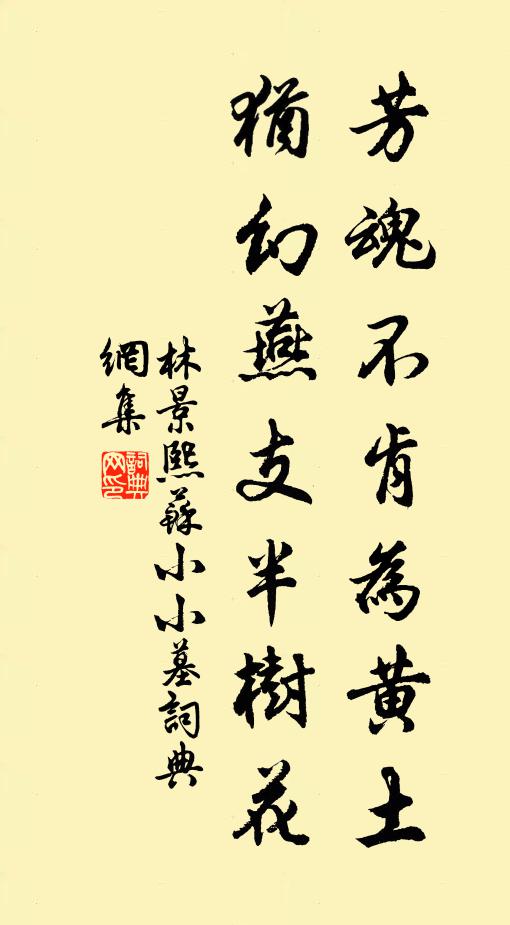 芳魂不肯為黃土
猶幻燕支半樹花
林景熙蘇小小墓詞典
網集
詞典网印